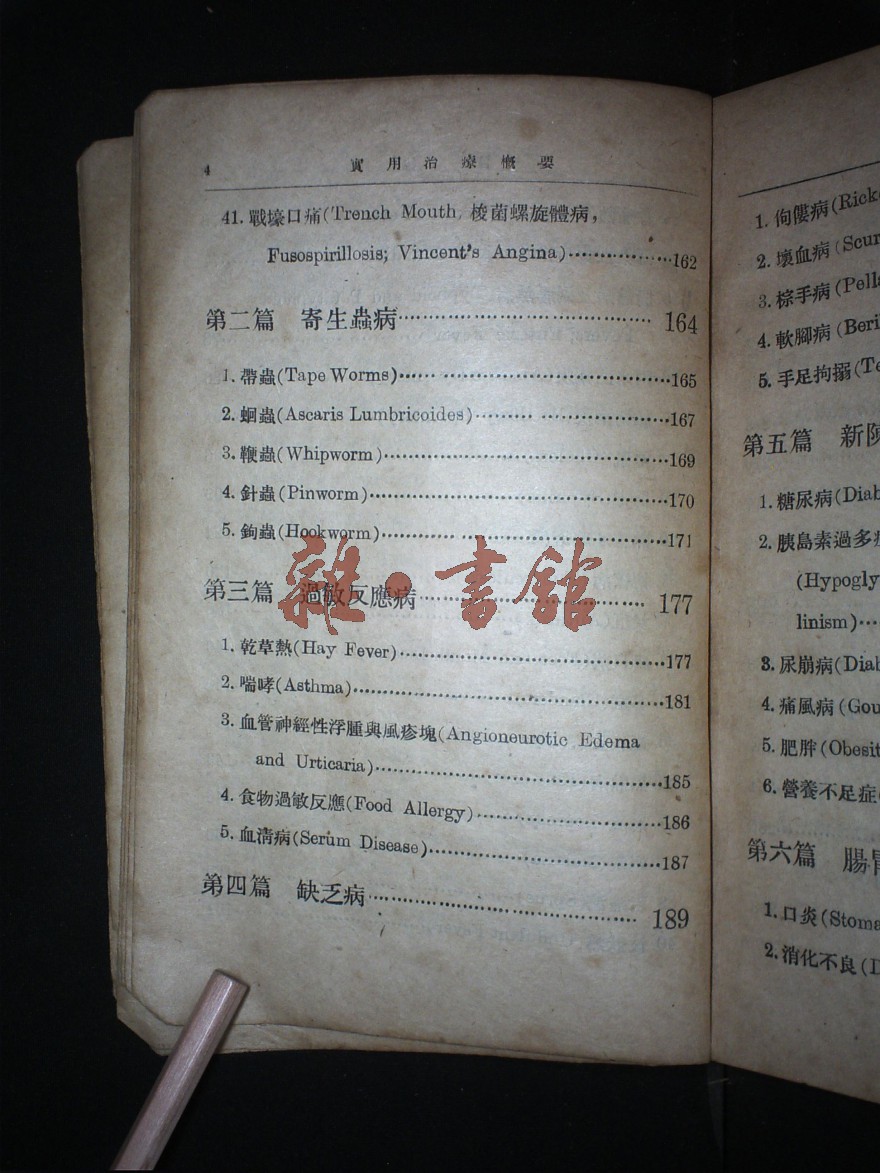 4 實用治療概要
41. 戰壕口痛(Trench Mouth, 梭菌螺旋體病,
Fusospirillosis; Vincent's Angina)··················162
第二篇 寄生蟲病··································164
1. 帶蟲(Tape Worms)··································165
2. 蛔蟲(Ascaris Lumbricoides)··························167
3. 鞭蟲(Whipworm)····································169
4. 針蟲(Pinworm)·····································170
5. 鉤蟲(Hookworm)···································171
第三篇 過敏反應病································177
1. 乾草熱(Hay Fever)··································177
2. 喘哮(Asthma)······································181
3. 血管神經性浮腫與風疹塊(Angioneurotic Edema
and Urticaria)······································185
4. 食物過敏反應(Food Allergy)··························186
5. 血清病(Serum Disease)·······························187
第四篇 缺乏病····································189
雜·書館
1. 佝僂病(Rick
2. 壞血病(Scur
3. 棕手病(Pella
4. 軟腳病(Beri
5. 手足拘搦(Te
第五篇 新陳
1. 糖尿病(Diab
2. 胰島素過多
(Hypogly
linism)···
3. 尿崩病(Diab
4. 痛風病(Gou
5. 肥胖(Obesit
6. 營養不足症
第六篇 腸胃
1. 口炎(Stoma
2. 消化不良(D